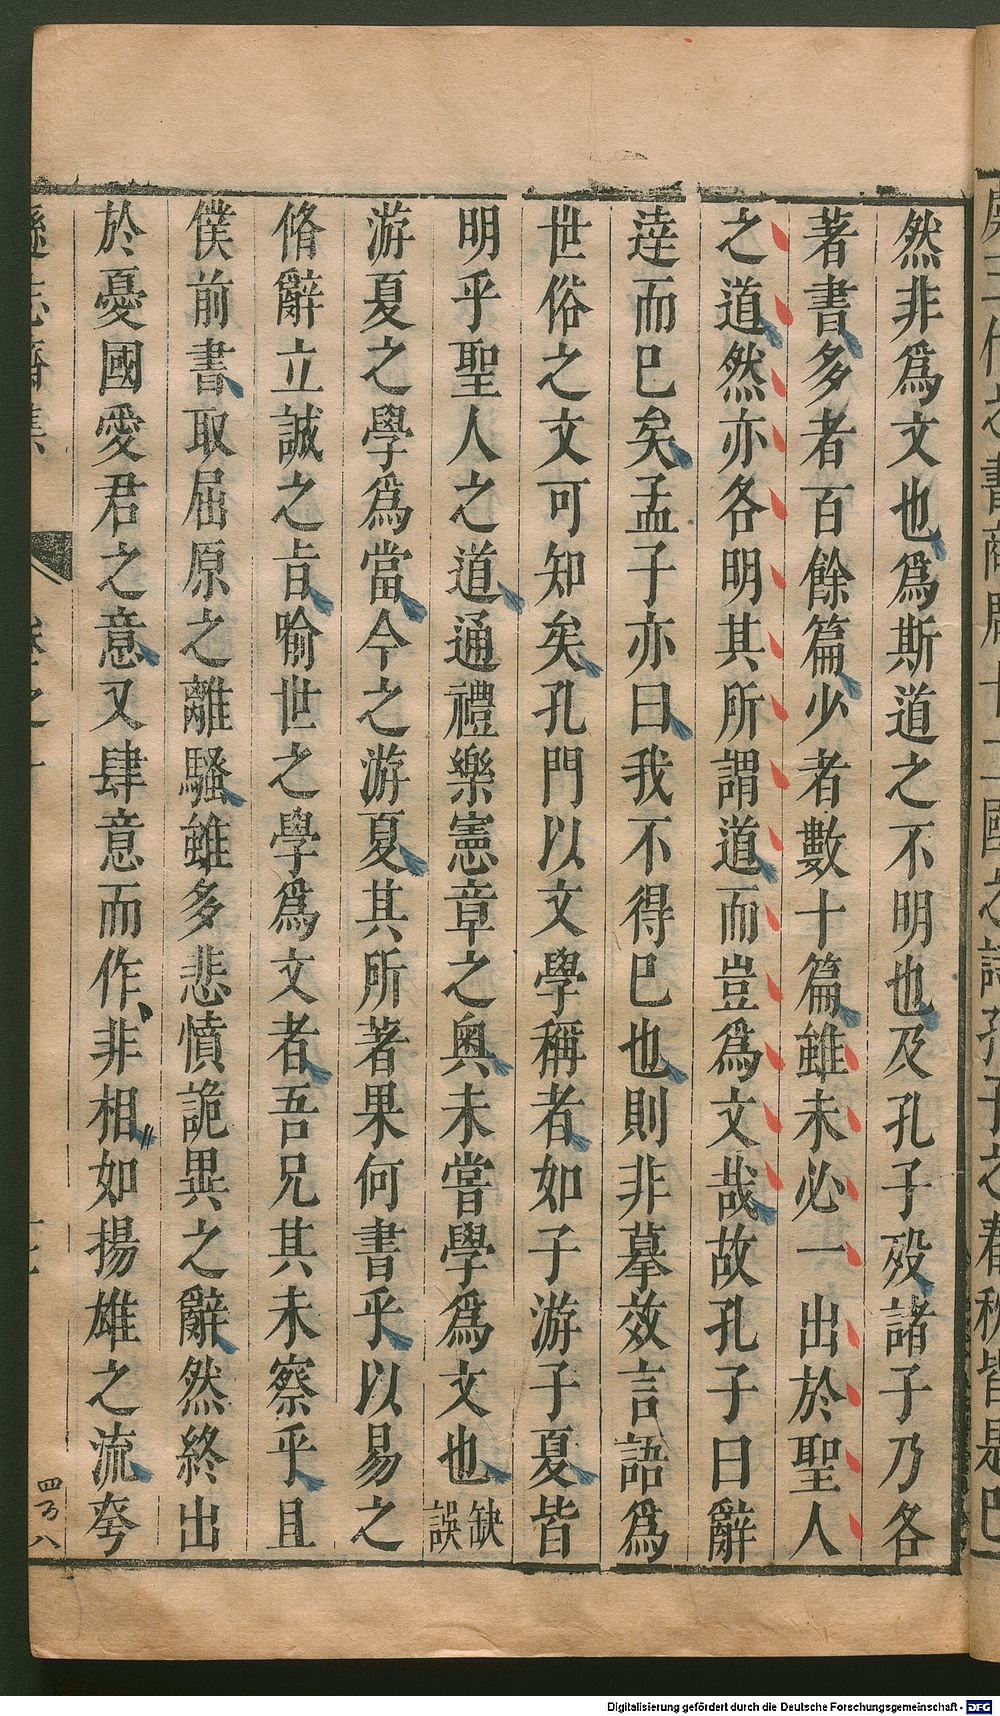 然非爲文也爲斯道之不明也及孔子殁諸子乃各
著書多者百餘篇少者數十篇雖未必一出於聖人
之道然亦各明其所謂道而豈爲文哉故孔子曰辭
達而已矣孟子亦曰我不得已也則非摹效言語爲
世俗之文可知矣孔門以文學稱者如子游子夏皆
明乎聖人之道通禮樂憲章之奧未嘗學爲文也缺誤
游夏之學爲當今之游夏其所著果何書乎以易之
脩辭立誠之㫖喻世之學爲文者吾兄其未察乎且
僕前書取屈原之離騷雖多悲憤詭異之辭然終出
於憂國愛君之意又肆意而作非相如揚雄之流夸
遜志齋集
卷之十
Digitalisierung gefördert durch die Deutsche Forschungsgemeinschaft - DFG